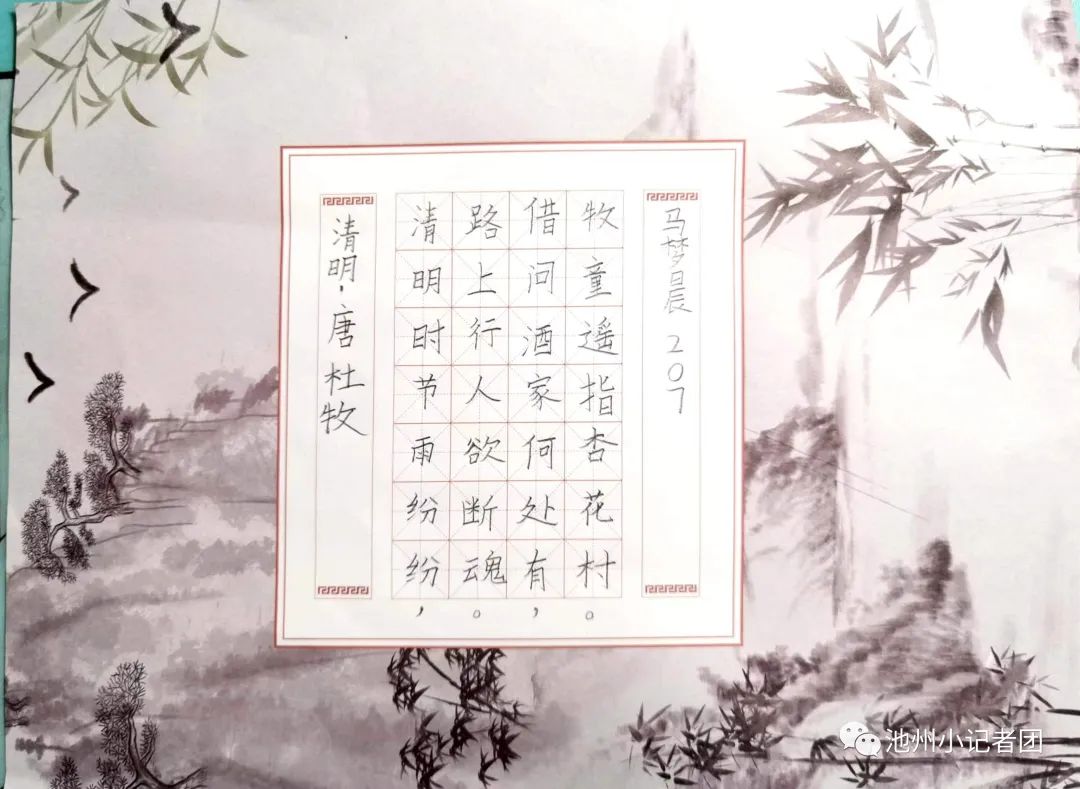 清明·唐 杜牧
清明时节雨纷纷，
路上行人欲断魂。
借问酒家何处有，
牧童遥指杏花村。
马梦晨 207
池州小记者团